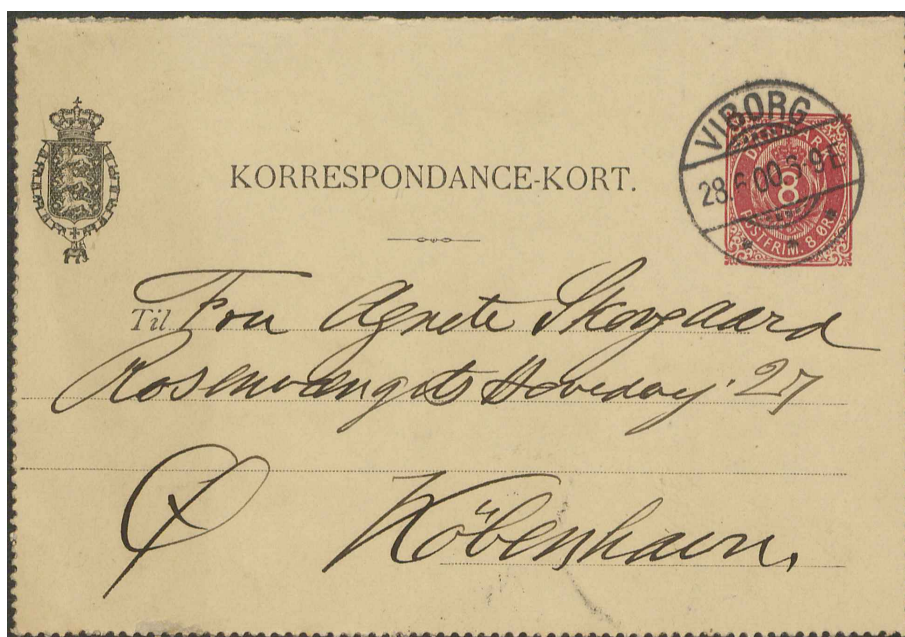 KORRESPONDANCE-KORT.
VIBORG
28. .00. 9 E
DANMARK
8
POSTFRIM. 8 ØRE
Til Fru Agnete Skovgaard
Rosenvængets Hovedvej 27
Ø København.